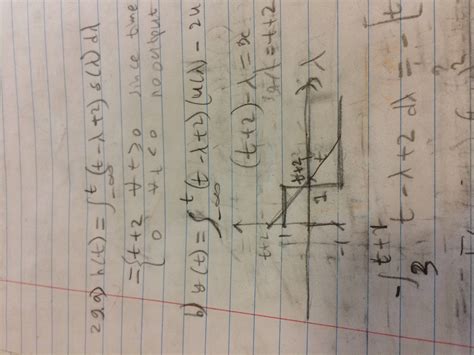 2aa) h(t) = ∫_{-∞}^{t} (t-λ+2) δ(λ) dλ
= { t+2 ∀ t>0 since time
0 ∀ t<0 no output
b) y(t) = ∫_{-∞}^{t} (t-λ+2)(u(λ) - 2u
(t+2) - λ = x
t+2
1
t+2
λ
1
t
-1
-∫_{3}^{t+1} t-λ+2 dλ = -[t